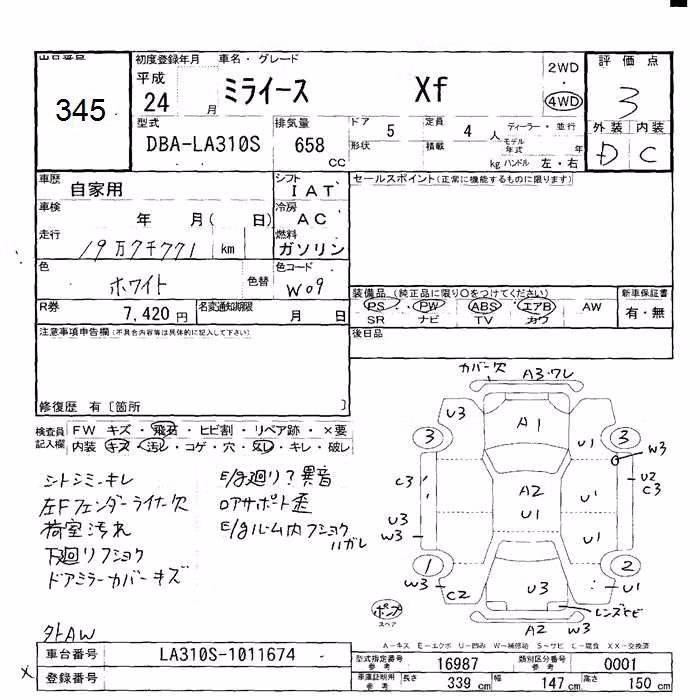 初度登録年月 車名・グレード
345 平成 24 月 ミライース Xf 2WD 4WD
評価点 3
型式 DBA-LA310S 排気量 658 CC
ドア 5 定員 4 人 ディーラー・並行
形状 積載 kg モデル年式 年 ハンドル 左・右
外装 内装
D C
車歴 自家用 シフト IAT
セールスポイント(正常に機能するものに限ります)
車検 年 月( 日) 冷房 AC
走行 19万7千771 km 燃料 ガソリン
色 ホワイト 色替 色コード W09
装備品 (純正品に限り○をつけてください) 新車保証書
PS PW ABS エアB AW 有・無
SR ナビ TV カワ
R券 7,420円 名変通知期限 月 日
後日品
注意事項申告欄(不具合内容等は具体的に記入して下さい)
修復歴 有〔箇所 〕
検査員記入欄 FW キズ・飛石・ヒビ割・リペア跡・×要
内装 キズ・汚レ・コゲ・穴・スレ・キレ・破レ
シトシミ・キレ
左Fフェンダーライナー欠
荷室汚れ
下廻リフショク
ドアミラーカバーキズ
E/g廻り?異音
ロアサポート歪
E/gルーム内フショク
ハガレ
カバー欠 A3・ワレ
U3 A1
3 U1 3
W3
C3 A2 U1 U1 U2 C3
U3 W3 U1
1 2
W3 C2 U3 U1
レンズヒビ
ポンプ
スペア
A2 W3
外AW
A-キズ E-エクボ U-凹み W-補修跡 S-サビ C-腐食 XX-交換済
車台番号 LA310S-1011674
型式指定番号 参考 16987 類別区分番号 参考 0001
× 登録番号
車庫証明用 参考 長さ 339 cm 幅 147 cm 高さ 150 cm